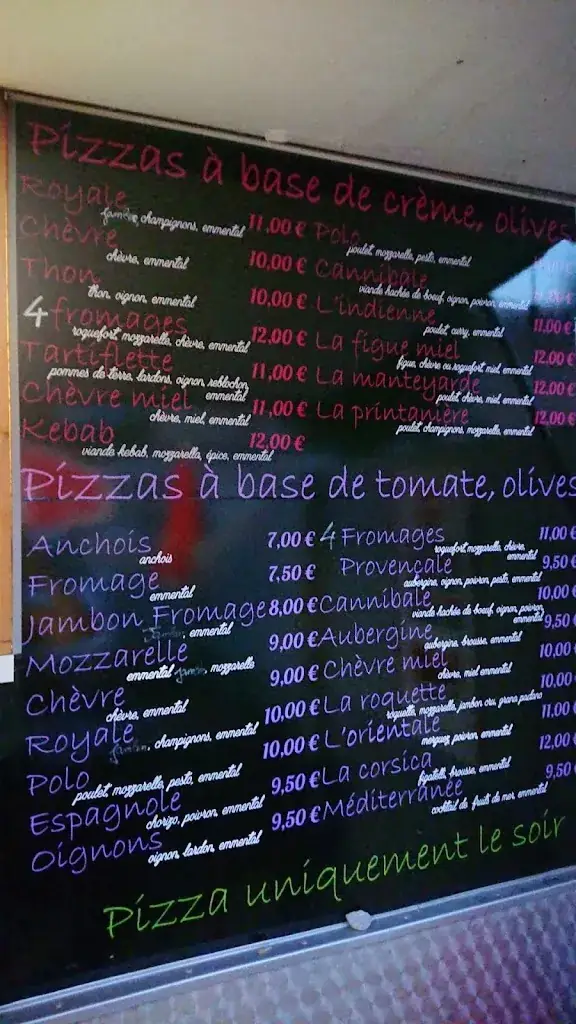 Pizzas à base de crème, olives
Royale 11,00 €
jambon, champignons, emmental
Chèvre 10,00 €
chèvre, emmental
Thon 10,00 €
thon, oignon, emmental
4 fromages 12,00 €
roquefort, mozzarelle, chèvre, emmental
Tartiflette 11,00 €
pommes de terre, lardons, oignon, reblochon,
emmental
Chèvre miel 11,00 €
chèvre, miel, emmental
Kebab 12,00 €
viande kebab, mozzarella, épice, emmental
Polo
poulet, mozzarelle, pesto, emmental
Cannibale
viande hachée de boeuf, oignon, poivron, emmental
L'indienne 11,00
poulet, curry, emmental
La figue miel 12,00 €
figue, chèvre ou roquefort, miel, emmental
La manteyarde 12,00 €
poulet, chèvre, miel, emmental
La printanière 12,00 €
poulet, champignons, mozzarelle, emmental
Pizzas à base de tomate, olives
Anchois 7,00 €
anchois
Fromage 7,50 €
emmental
Jambon Fromage 8,00 €
jambon, emmental
Mozzarelle 9,00 €
emmental jambon, mozzarelle
Chèvre 9,00 €
chèvre, emmental
Royale 10,00 €
jambon, champignons, emmental
Polo 10,00 €
poulet, mozzarelle, pesto, emmental
Espagnole 9,50 €
chorizo, poivron, emmental
Oignons 9,50 €
oignon, lardon, emmental
4 Fromages 11,00 €
roquefort, mozzarelle, chèvre,
emmental
Provençale 9,50 €
aubergine, oignon, poivron, pesto, emmental
Cannibale 10,00 €
viande hachée de boeuf, oignon, poivron,
emmental
Aubergine 9,50 €
aubergine, brousse, emmental
Chèvre miel 10,00 €
chèvre, miel emmental
La roquette 10,00 €
roquette, mozzarelle, jambon cru, grana padano
L'orientale 11,00 €
merguez, poivron, emmental
La corsica 12,00 €
figatelli, brousse, emmental
Méditerranée 9,50 €
cocktail de fruits de mer, emmental
Pizza uniquement le soir